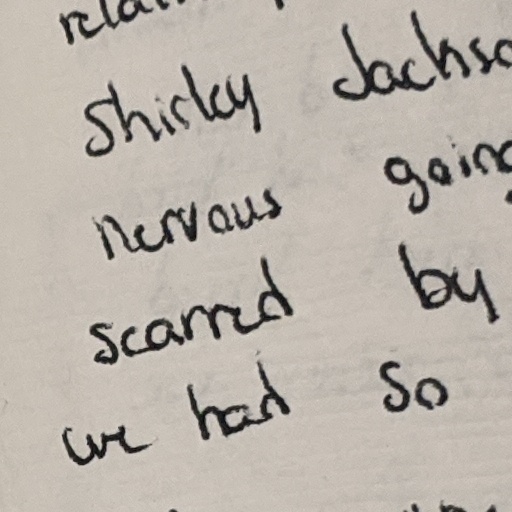 Shirley Jackso
nervous going
scarred by
we had so